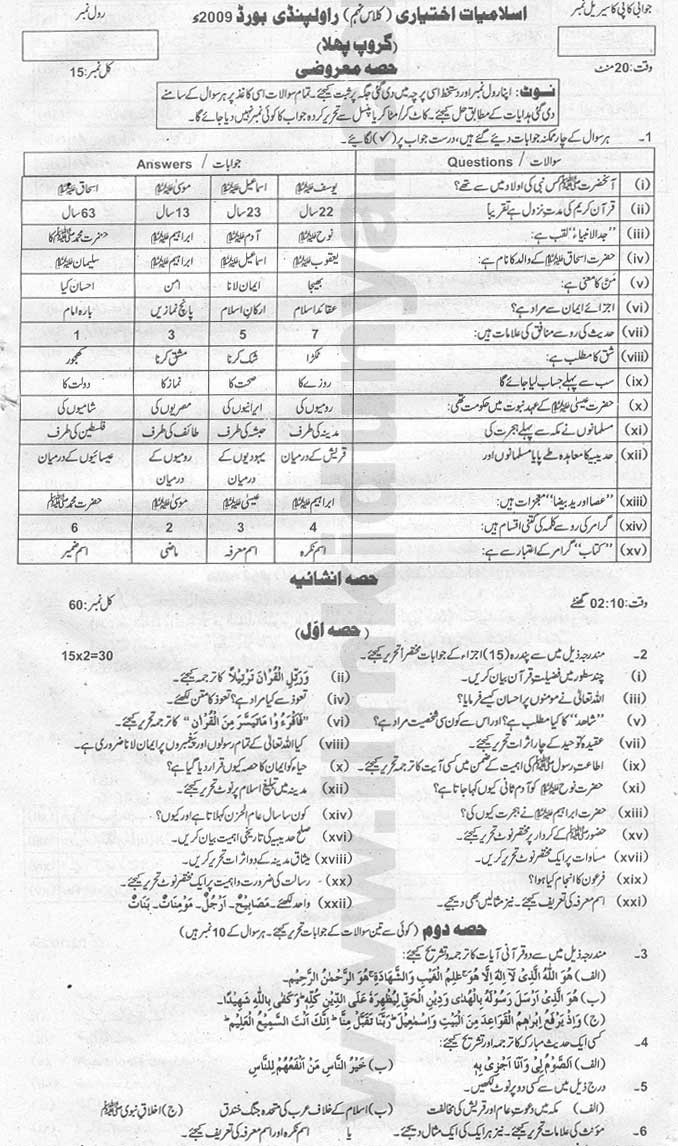 جوابی کاپی کا سیریل نمبر اسلامیات اختیاری (کلاس نہم) راولپنڈی بورڈ 2009ء رول نمبر
(گروپ پہلا)
وقت:20 منٹ حصہ معروضی کل نمبر:15
نوٹ: اپنا رول نمبر اور دستخط اسی پرچہ میں دی گئی جگہ پر ثبت کیجئے۔ تمام سوالات اسی کاغذ پر ہر سوال کے سامنے
دی گئی ہدایات کے مطابق حل کیجئے۔ کاٹ کر/مٹا کر یا پنسل سے تحریر کردہ جواب کا کوئی نمبر نہیں دیا جائے گا۔
1۔ ہر سوال کے چار ممکنہ جوابات دیئے گئے ہیں، درست جواب پر (✓) لگائیے۔
سوالات / Questions جوابات / Answers
(i) آنحضرت ﷺ کس نبی کی اولاد میں سے تھے؟ یوسف علیہ السلام اسماعیل علیہ السلام موسیٰ علیہ السلام اسحاق علیہ السلام
(ii) قرآن کریم کی مدت نزول ہے تقریباً 22 سال 23 سال 13 سال 63 سال
(iii) "جد الانبیاء" لقب ہے: نوح علیہ السلام آدم علیہ السلام ابراہیم علیہ السلام حضرت محمد ﷺ کا
(iv) حضرت اسحاق علیہ السلام کے والد کا نام ہے: یعقوب علیہ السلام اسماعیل علیہ السلام ابراہیم علیہ السلام سلیمان علیہ السلام
(v) مَنَّ کا معنی ہے: بھیجا ایمان لانا امن احسان کیا
(vi) اجزائے ایمان سے مراد ہے؟ عقائد اسلام ارکان اسلام پانچ نمازیں بارہ امام
(vii) حدیث کی رو سے منافق کی علامات ہیں: 7 5 3 1
(viii) شق کا مطلب ہے: ٹکڑا شک کرنا مشق کرنا کھجور
(ix) سب سے پہلے حساب لیا جائے گا روزے کا صحت کا نماز کا دولت کا
(x) حضرت عیسیٰ علیہ السلام کے عہد نبوت میں حکومت تھی: رومیوں کی ایرانیوں کی مصریوں کی شامیوں کی
(xi) مسلمانوں نے مکہ سے پہلے ہجرت کی مدینہ کی طرف حبشہ کی طرف طائف کی طرف فلسطین کی طرف
(xii) حدیبیہ کا معاہدہ طے پایا مسلمانوں اور قریش کے درمیان یہودیوں کے درمیان رومیوں کے درمیان عیسائیوں کے درمیان
(xiii) "عصا اور ید بیضا" معجزات ہیں: ابراہیم علیہ السلام عیسیٰ علیہ السلام موسیٰ علیہ السلام حضرت محمد ﷺ
(xiv) گرامر کی رو سے کلمہ کی کتنی اقسام ہیں: 4 3 2 6
(xv) "کتاب" گرامر کے اعتبار سے ہے: اسم نکرہ اسم معرفہ ماضی اسم ضمیر
حصہ انشائیہ
وقت:02:10 گھنٹے کل نمبر:60
(حصہ اوّل)
2۔ مندرجہ ذیل میں سے پندرہ (15) اجزاء کے جوابات مختصراً تحریر کیجئے۔ 15x2=30
(i) چند سطور میں فضیلت قرآن بیان کریں۔ (ii) وَرَتِّلِ الْقُرْاٰنَ تَرْتِيْلًا کا ترجمہ تحریر کیجئے۔
(iii) اللہ تعالیٰ نے مومنوں پر احسان کیسے فرمایا؟ (iv) تعوذ سے کیا مراد ہے؟ تعوذ کا متن لکھئے۔
(v) "شاھد" کا کیا مطلب ہے؟ اور اس سے کون سی شخصیت مراد ہے؟ (vi) "فَاقْرَءُوْا مَا تَيَسَّرَ مِنَ الْقُرْاٰنِ" کا ترجمہ تحریر کیجئے۔
(vii) عقیدہ توحید کے چار اثرات تحریر کیجئے۔ (viii) کیا اللہ تعالیٰ کے تمام رسولوں اور پیغمبروں پر ایمان لانا ضروری ہے۔
(ix) اطاعت رسول ﷺ کی اہمیت کے ضمن میں کسی آیت کا ترجمہ تحریر کیجئے۔ (x) حیاء کو ایمان کا حصہ کیوں قرار دیا گیا ہے؟
(xi) حضرت نوح علیہ السلام کو آدم ثانی کیوں کہا جاتا ہے؟ (xii) مدینہ میں تبلیغ اسلام پر نوٹ تحریر کیجئے۔
(xiii) حضرت ابراہیم علیہ السلام نے ہجرت کیوں کی؟ (xiv) کون سا سال عام الحزن کہلاتا ہے اور کیوں؟
(xv) حضور ﷺ کے کردار پر مختصر نوٹ تحریر کیجئے۔ (xvi) صلح حدیبیہ کی تاریخی اہمیت بیان کریں۔
(xvii) مساوات پر ایک مختصر نوٹ تحریر کریں۔ (xviii) میثاق مدینہ کے دو اثرات تحریر کریں۔
(xix) فرعون کا انجام کیا ہوا؟ (xx) رسالت کی ضرورت و اہمیت پر ایک مختصر نوٹ تحریر کیجئے۔
(xxi) اسم معرفہ کی تعریف کیجئے۔ نیز مثالیں بھی دیجیے۔ (xxii) واحد لکھئے۔ مَصَابِيْحُ۔ اَرْجُلٌ۔ مُؤْمِنَاتٌ۔ بَنَاتٌ
حصہ دوم (کوئی سے تین سوالات کے جوابات تحریر کیجئے۔ ہر سوال کے 10 نمبر ہیں)
3۔ مندرجہ ذیل میں سے دو قرآنی آیات کا ترجمہ و تشریح کیجئے:
(الف) هُوَ اللّٰهُ الَّذِيْ لَا اِلٰهَ اِلَّا هُوَ عٰلِمُ الْغَيْبِ وَالشَّهَادَةِ هُوَ الرَّحْمٰنُ الرَّحِيْمُ۔
(ب) هُوَ الَّذِيْ اَرْسَلَ رَسُوْلَهٗ بِالْهُدٰى وَدِيْنِ الْحَقِّ لِيُظْهِرَهٗ عَلَى الدِّيْنِ كُلِّهٖ وَكَفٰى بِاللّٰهِ شَهِيْدًا۔
(ج) وَاِذْ يَرْفَعُ اِبْرٰهٖمُ الْقَوَاعِدَ مِنَ الْبَيْتِ وَاِسْمٰعِيْلُ رَبَّنَا تَقَبَّلْ مِنَّا اِنَّكَ اَنْتَ السَّمِيْعُ الْعَلِيْمُ۔
4۔ کسی ایک حدیث مبارکہ کا ترجمہ اور تشریح کیجئے:
(الف) اَلصَّوْمُ لِيْ وَاَنَا اَجْزِيْ بِهٖ (ب) خَيْرُ النَّاسِ مَنْ اَنْفَعُهُمْ لِلنَّاسِ
5۔ درج ذیل میں سے کسی دو پر نوٹ لکھیں۔
(الف) مکہ میں دعوت عام اور قریش کی مخالفت (ب) اسلام کے خلاف عرب کی متحدہ جنگ خندق (ج) اخلاق نبوی ﷺ
6۔ مؤنث کی علامات تحریر کیجئے۔ نیز ہر ایک کی ایک مثال دیجئے۔ یا اسم نکرہ اور اسم معرفہ کی تعریف کیجئے۔